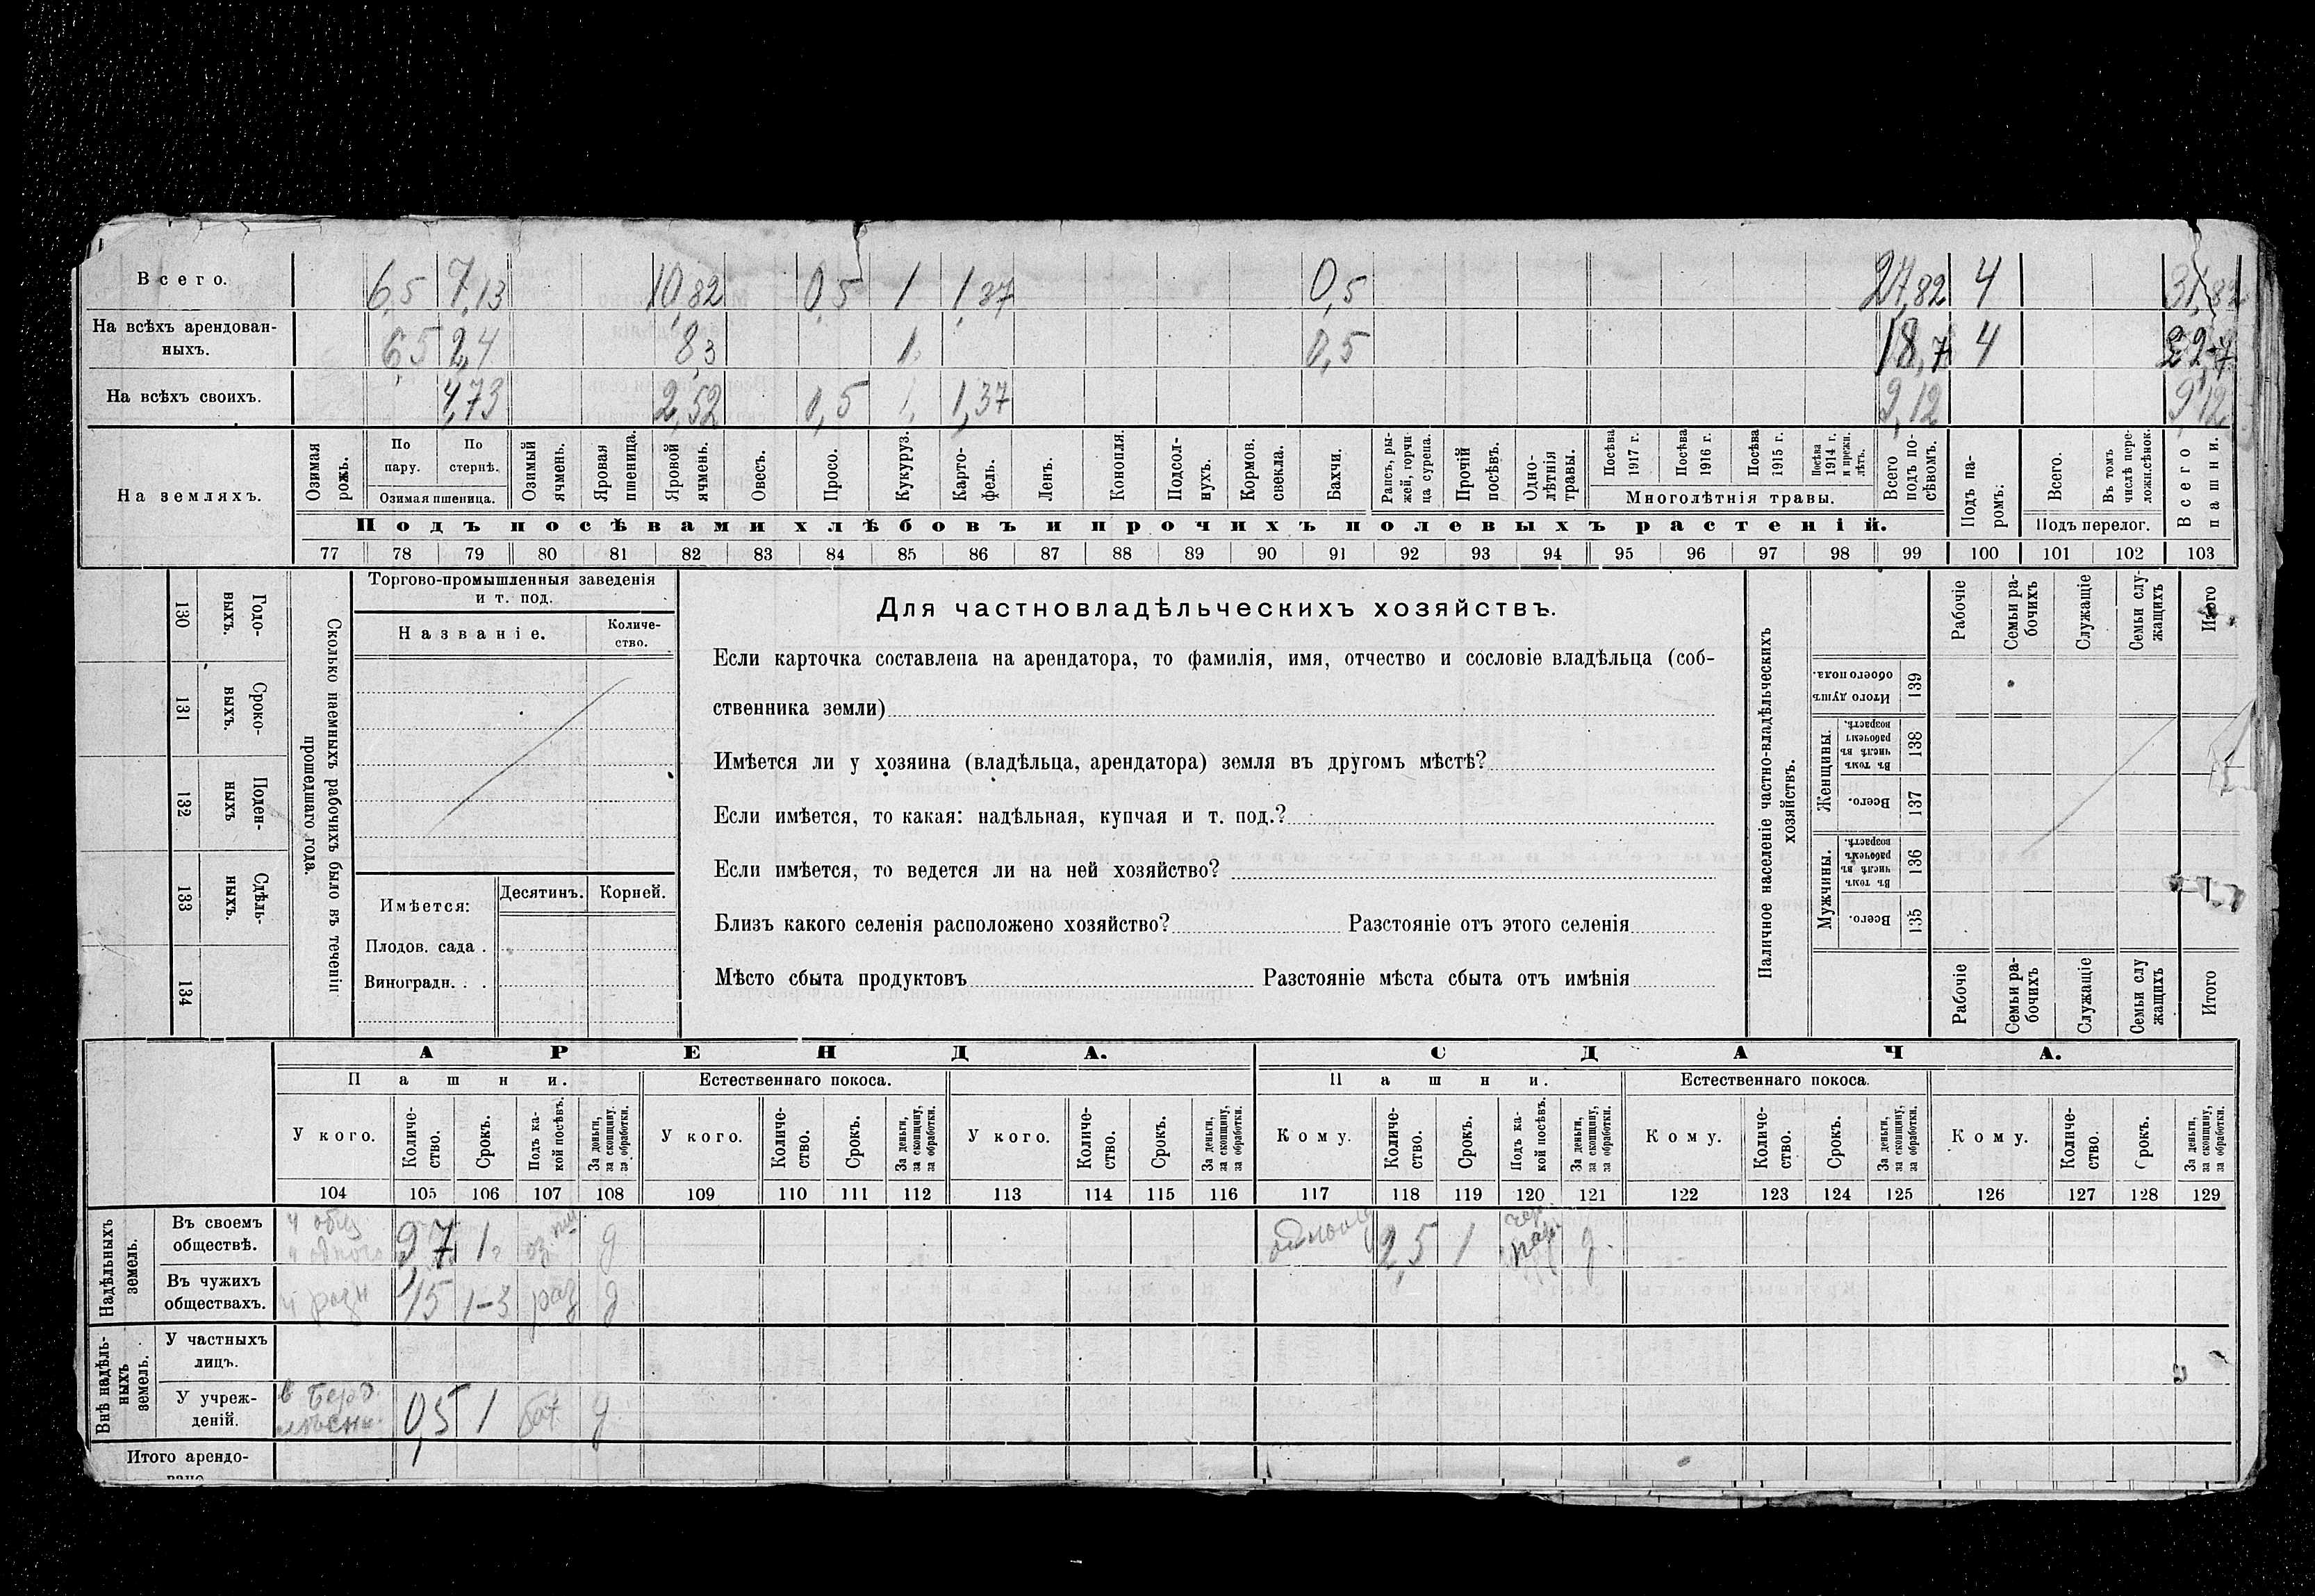 Всего. 6,5 7,13 10,82 0,5 1 1,37 0,5 27,82 4 31,82
На всѣхъ арендован-
ныхъ. 6,5 2,4 8,3 1 0,5 18,7 4 22,7
На всѣхъ своихъ. 4,73 2,52 0,5 1 1,37 9,12 9,12
На земляхъ.
Озимая рожь.
По пару.
По стернѣ.
Озимая пшеница.
Озимый ячмень.
Яровая пшеница.
Яровой ячмень.
Овесъ.
Просо.
Кукуруз.
Карто-
фель.
Ленъ.
Конопля.
Подсол-
нухъ.
Кормов. свекла.
Бахчи.
Рапсъ, ры-
жей, горчи
ца сурепа.
Прочій посѣвъ.
Одно-
лѣтнія
травы.
Посѣва 1917 г.
Посѣва 1916 г.
Посѣва 1915 г.
Посѣва 1914 г. и прежн. лѣтъ.
Многолѣтнія травы.
Всего подъ по-
сѣвомъ.
Подъ па-
ромъ:
Всего.
Въ томъ числѣ пере-
ложн.сѣнок.
Подъ перелог.
Всего пашни.
Подъ посѣвами хлѣбовъ и прочихъ полевыхъ растеній.
77 78 79 80 81 82 83 84 85 86 87 88 89 90 91 92 93 94 95 96 97 98 99 100 101 102 103
Сколько наемныхъ рабочихъ было въ теченіи
прошедшаго года.
Годо-
выхъ.
130
Сроко-
выхъ.
131
Поден-
ныхъ
132
Сдѣль-
ныхъ.
133
134
Торгово-промышленныя заведенія
и т. под.
Названіе.
Количе-
ство.
Имѣется:
Десятинъ.
Корней.
Плодов. сада .
Виноградн. . .
Для частновладѣльческихъ хозяйствъ.
Если карточка составлена на арендатора, то фамилія, имя, отчество и сословіе владѣльца (соб-
ственника земли)
Имѣется ли у хозяина (владѣльца, арендатора) земля въ другомъ мѣстѣ?
Если имѣется, то какая: надѣльная, купчая и т. под.?
Если имѣется, то ведется ли на ней хозяйство?
Близъ какого селенія расположено хозяйство? Разстояніе отъ этого селенія
Мѣсто сбыта продуктовъ Разстояніе мѣста сбыта отъ имѣнія
Наличное населеніе частно-владѣльческихъ
хозяйствъ.
Рабочіе
Семьи ра-
бочихъ
Служащіе
Семьи слу-
жащихъ
Итого
Итого душъ обоего пола.
139
Женщины.
Въ томъ числѣ въ рабочемъ возрастѣ.
138
Всего.
137
Мужчины.
Въ томъ числѣ въ рабочемъ возрастѣ.
136
Всего.
135
Рабочіе
Семьи ра-
бочихъ
Служащіе
Семьи слу
жащихъ
Итого
АРЕНДА. СДАЧА.
Пашни. Естественнаго покоса. Пашни. Естественнаго покоса.
У кого. Количе-
ство. Срокъ. Подъ ка-
кой посѣвъ. За деньги, за скопщину, за обработки.
У кого. Количе-
ство. Срокъ. За деньги, за скопщину, за обработки.
У кого. Количе-
ство. Срокъ. За деньги, за скопщину, за обработки.
Кому. Количе-
ство. Срокъ. Подъ ка-
кой посѣвъ. За деньги, за скопщину, за обработки.
Кому. Количе-
ство. Срокъ. За деньги, за скопщину, за обработки.
Кому. Количе-
ство. Срокъ. За деньги, за скопщину, за обработки.
104 105 106 107 108 109 110 111 112 113 114 115 116 117 118 119 120 121 122 123 124 125 126 127 128 129
Надѣльныхъ
земель.
Въ своемъ
обществѣ. одного 1 оз пш д 2,5 1 д.
Въ чужихъ
обществахъ. разн 15 1-3 раз д
Внѣ надѣль-
ныхъ
земель.
У частныхъ
лицъ.
У учреж-
деній. в 0,5 1 бах д
Итого арендо-